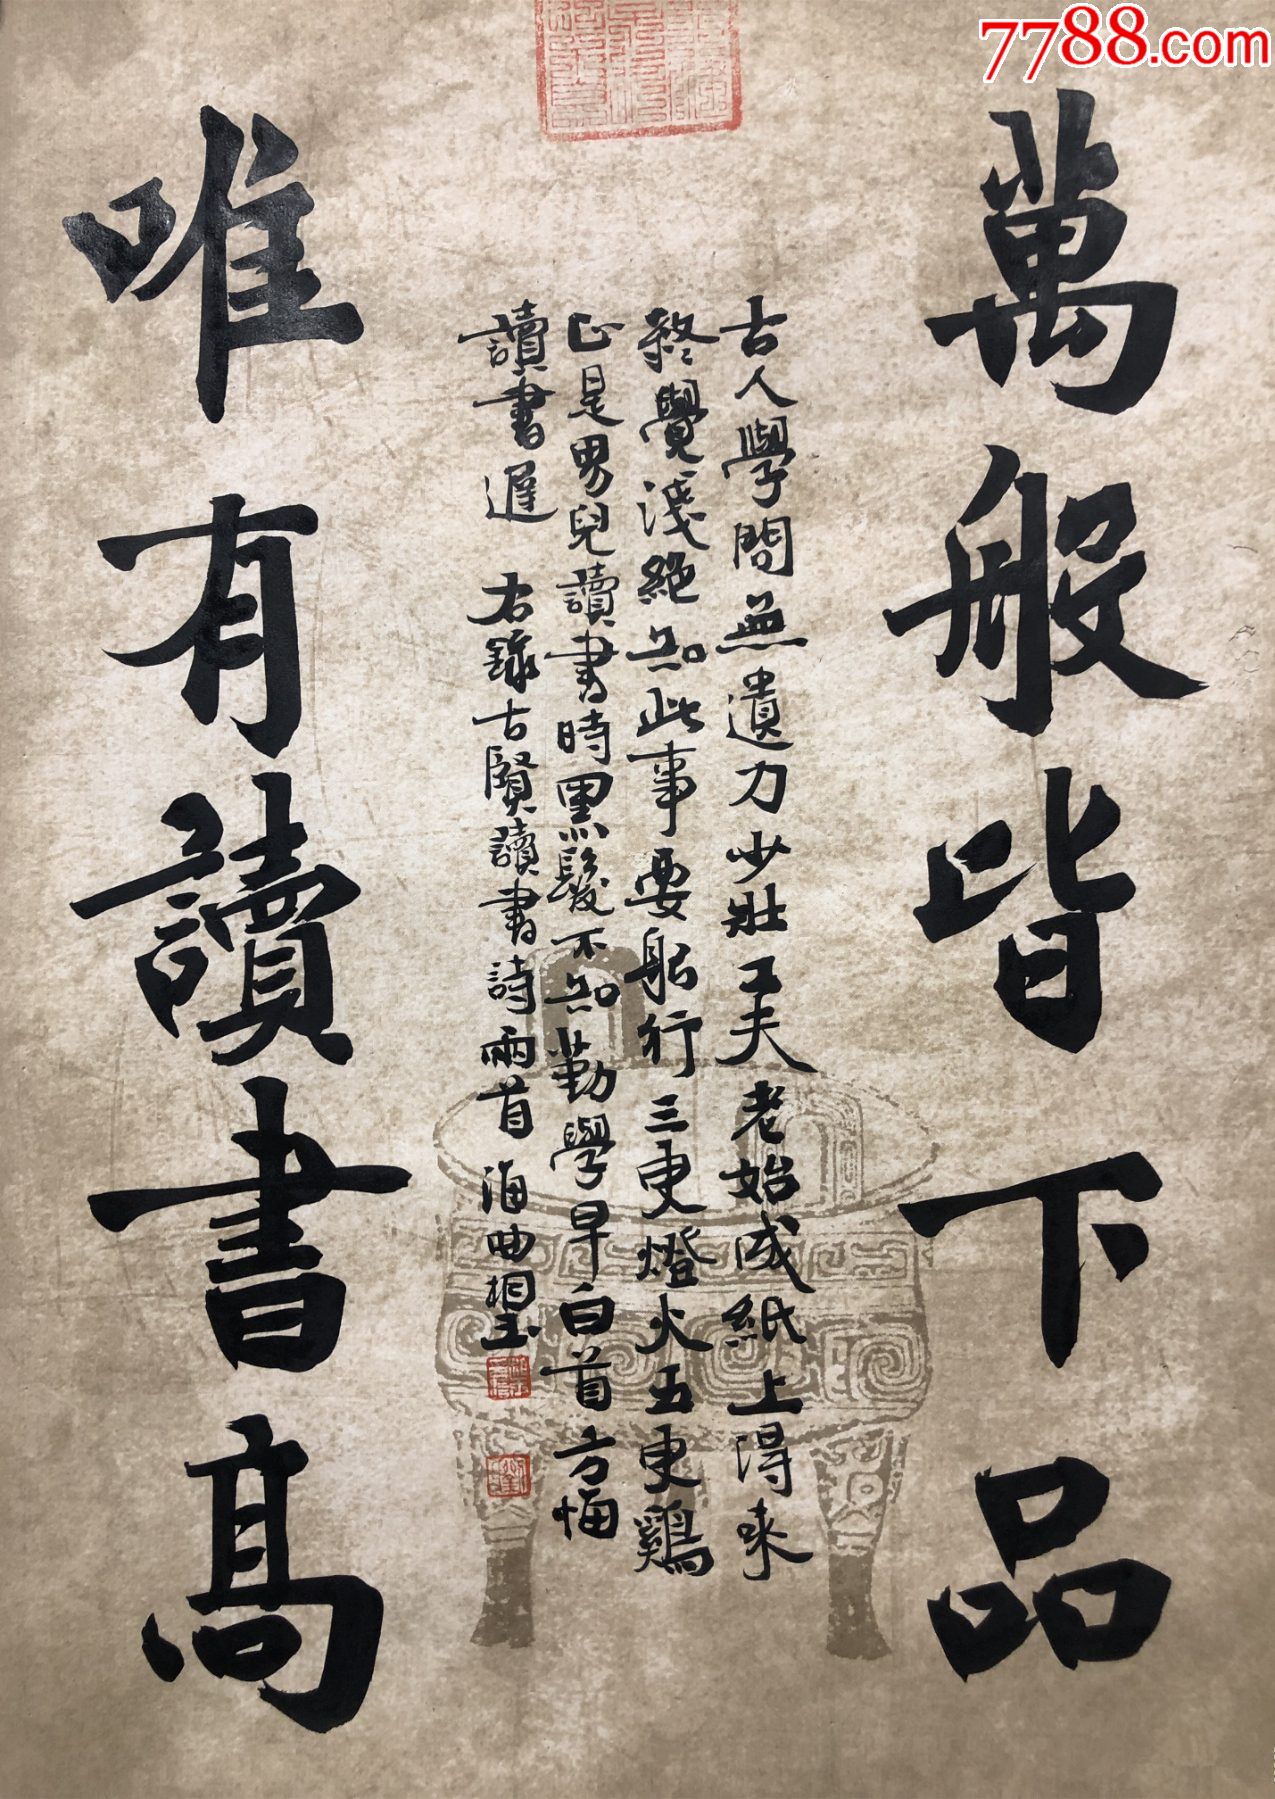 7788.com
萬般皆下品
古人學問無遺力少壯工夫老始成紙上得来
終覺淺絕知此事要船行三更燈火五更鷄
正是男兒讀書時黑髮不知勤學早白首方悔
讀書遲 右錄古賢讀書詩兩首 海曲
唯有讀書高